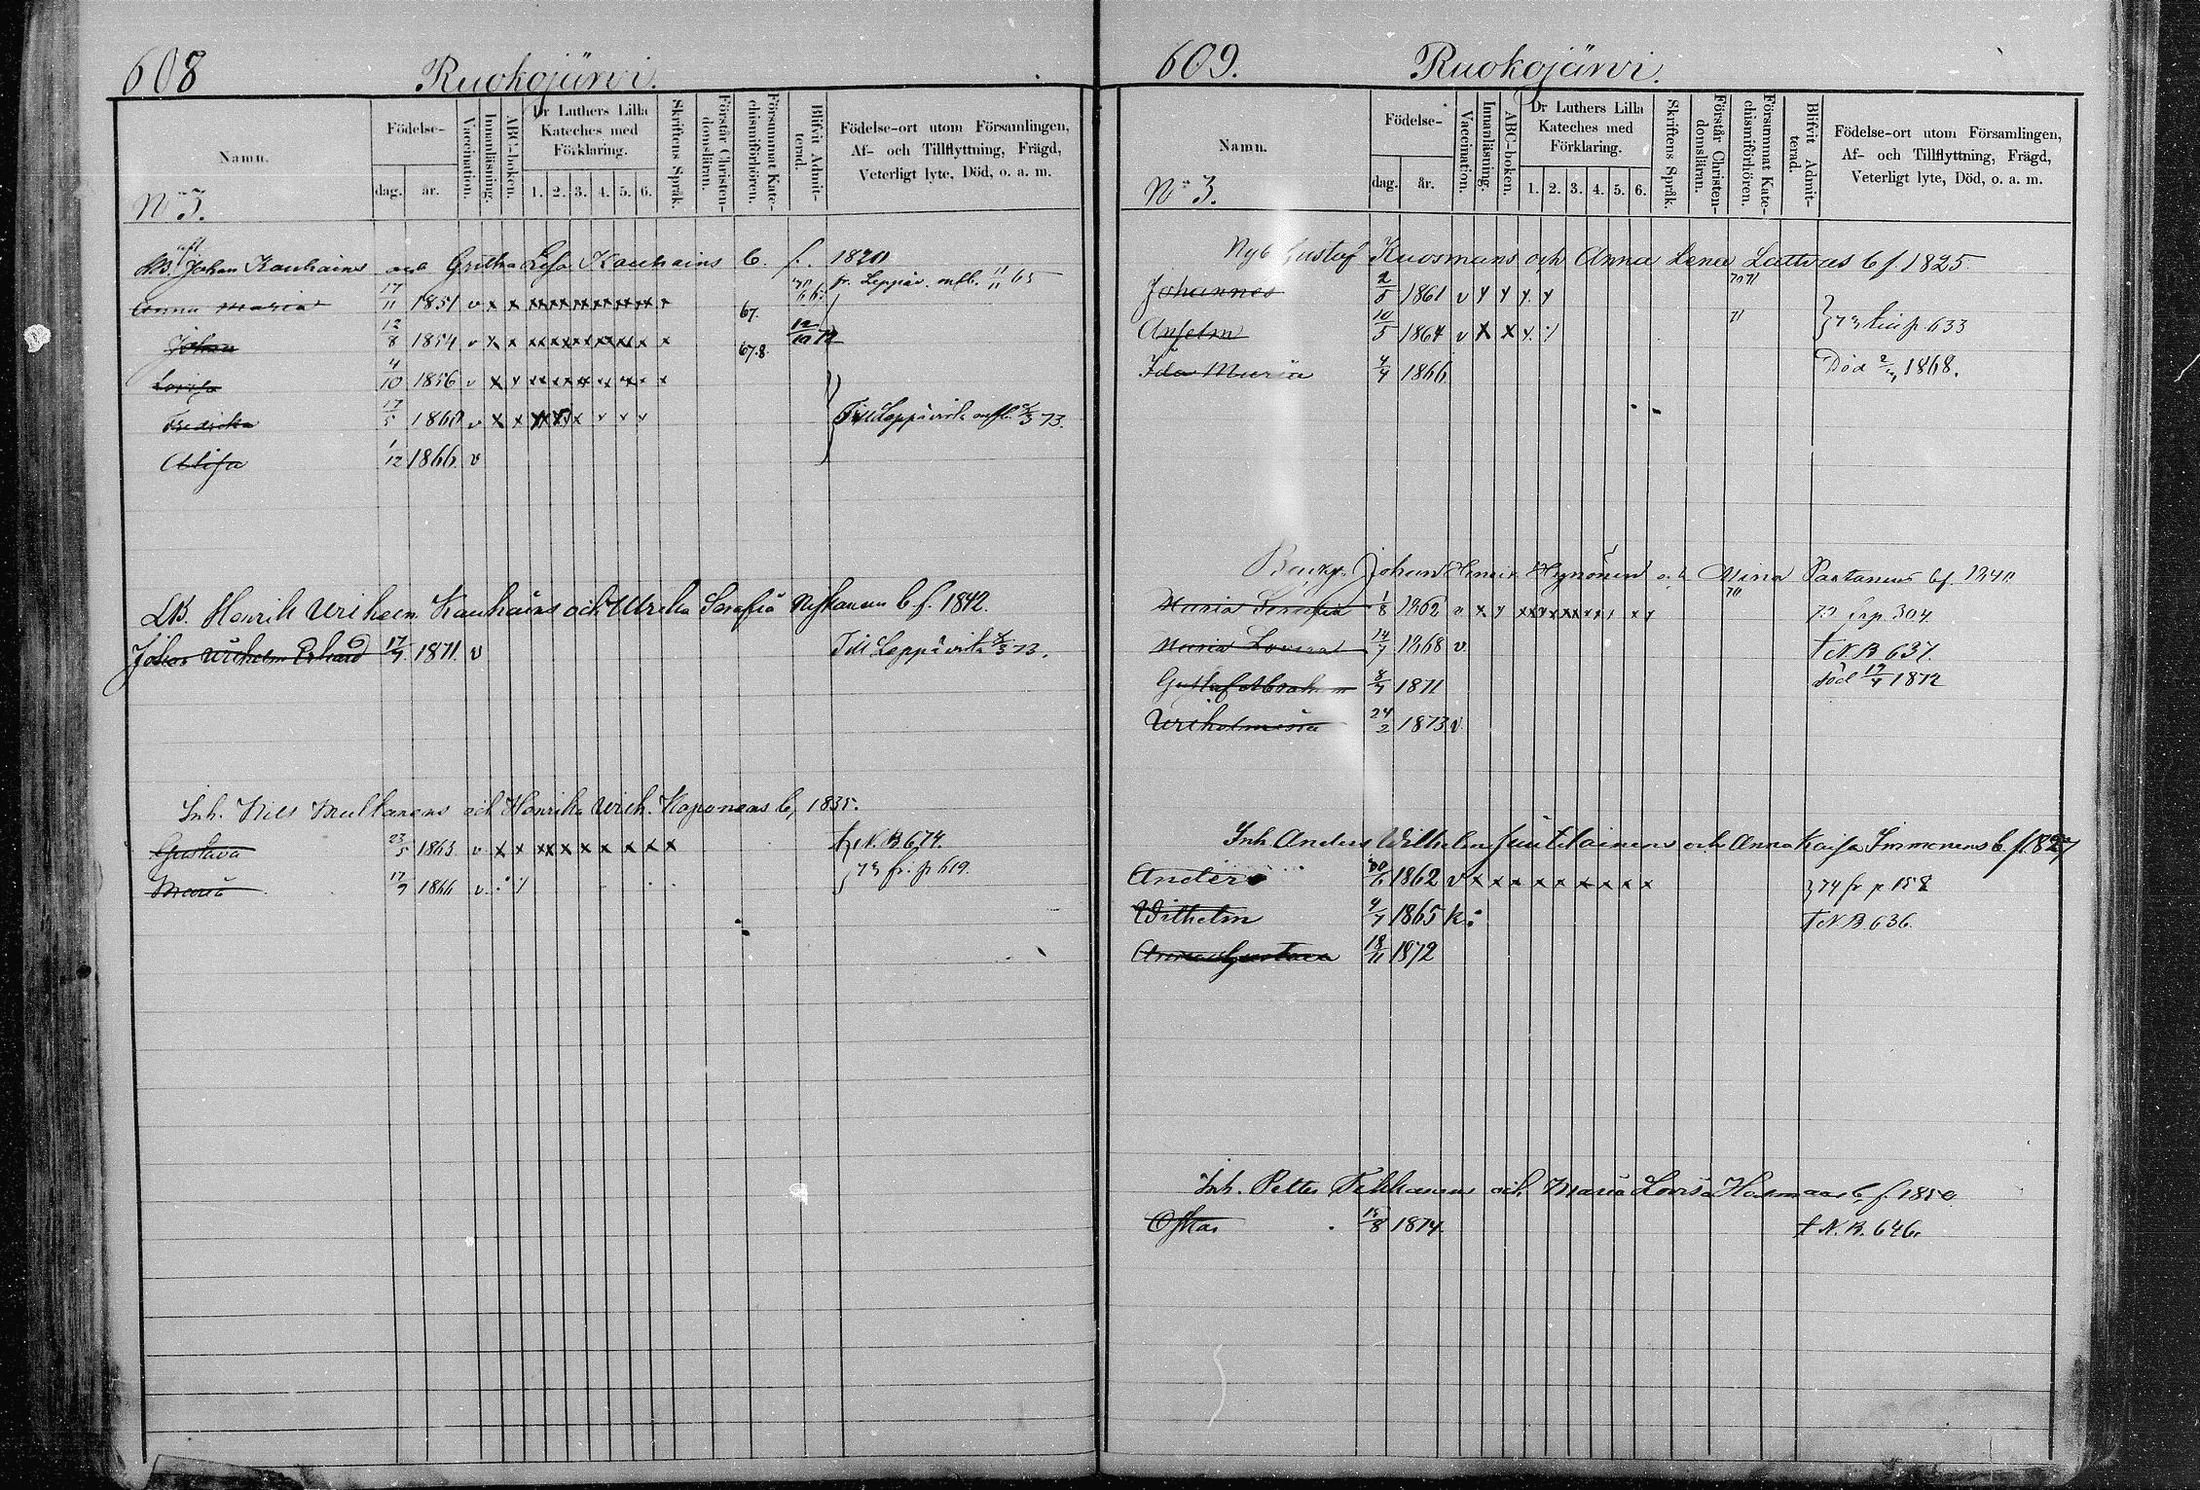 608
Ruokojärvi.
Namn.
Födelse-
dag.
år.
Vaccination.
Innanläsning.
ABC-boken.
Dr Luthers Lilla
Kateches med
Förklaring.
1. 2. 3. 4. 5. 6.
Skriftens Språk.
Förstår Christen-
domsläran.
Försummat Kate-
chismiförhören.
Blifvit Admit-
terad.
Födelse-ort utom Församlingen,
Af- och Tillflyttning, Frägd,
Veterligt lyte, Död, o. a. m.
No 3.
Johan Kauhains och Gretha Lisa Kauhains b. f. 1820
Anna Maria 17/11 1851 v x x fr. Leppäv. mfb. 65
Johan 12/8 1854 v x x 67. 12/10 72
Lovisa 4/10 1856 v x x 67.8.
Fredrika 17/5 1860 v x x Till Leppävirta mfb. 73.
Alisa 1/12 1866 v
LB. Henrik Wilhelm Kauhains och Ulrika Serafia b. f. 1842.
Johan Wilhelm Erhard 17/7 1871. v Till Leppävirta 73.
Inh. Nils Mulkanens och Henrika Wilh. Koponens b. 1835.
Gustava 23/5 1863 v x x N.B. 674.
Maria 12/9 1866 v 73 fr. p 619.
609.
Ruokojärvi.
Namn.
Födelse-
dag.
år.
Vaccination.
Innanläsning.
ABC-boken.
Dr Luthers Lilla
Kateches med
Förklaring.
1. 2. 3. 4. 5. 6.
Skriftens Språk.
Förstår Christen-
domsläran.
Försummat Kate-
chismiförhören.
Blifvit Admit-
terad.
Födelse-ort utom Församlingen,
Af- och Tillflyttning, Frägd,
Veterligt lyte, Död, o. a. m.
No 3.
Nyb Gustaf Kuosmans och Anna Lena Lattus b f 1825
Johannes 2/8 1861 v 70 71
Anselm 10/5 1864 v x x 71 73 p. 633
Ida Maria 4/4 1866 Död 1868.
Johan Henrik Hynönen och Mina Partanens b f. 1840
Maria Serafia 1/8 1862 v x 70 p 304
Maria Lovisa 14/7 1868 v † N.B 637.
Gustaf Abraham 8/7 1871 död 17/4 1872
Wilhelmina 24/2 1873 v
Inh Anders Wilhelm Juutilainens och Anna Kaisa Immonens b. f. 1827
Anders 30/6 1862 v x x x x x x x x 74 fr p 158
Wilhelm 4/7 1865 k † N.B. 636.
Anna Gustava 18/11 1872
Inh. Petter och Maria Lovisa b. f. 1850
Oskar 8 1874. † N.B. 646.